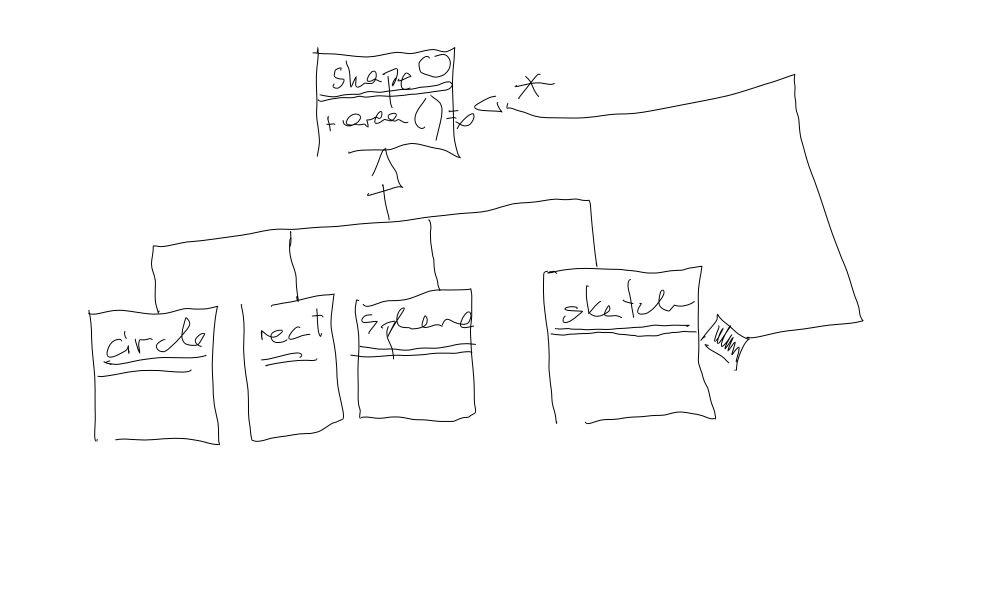 shape
+ area() = 0
*
circle
rect
sphere
sketch